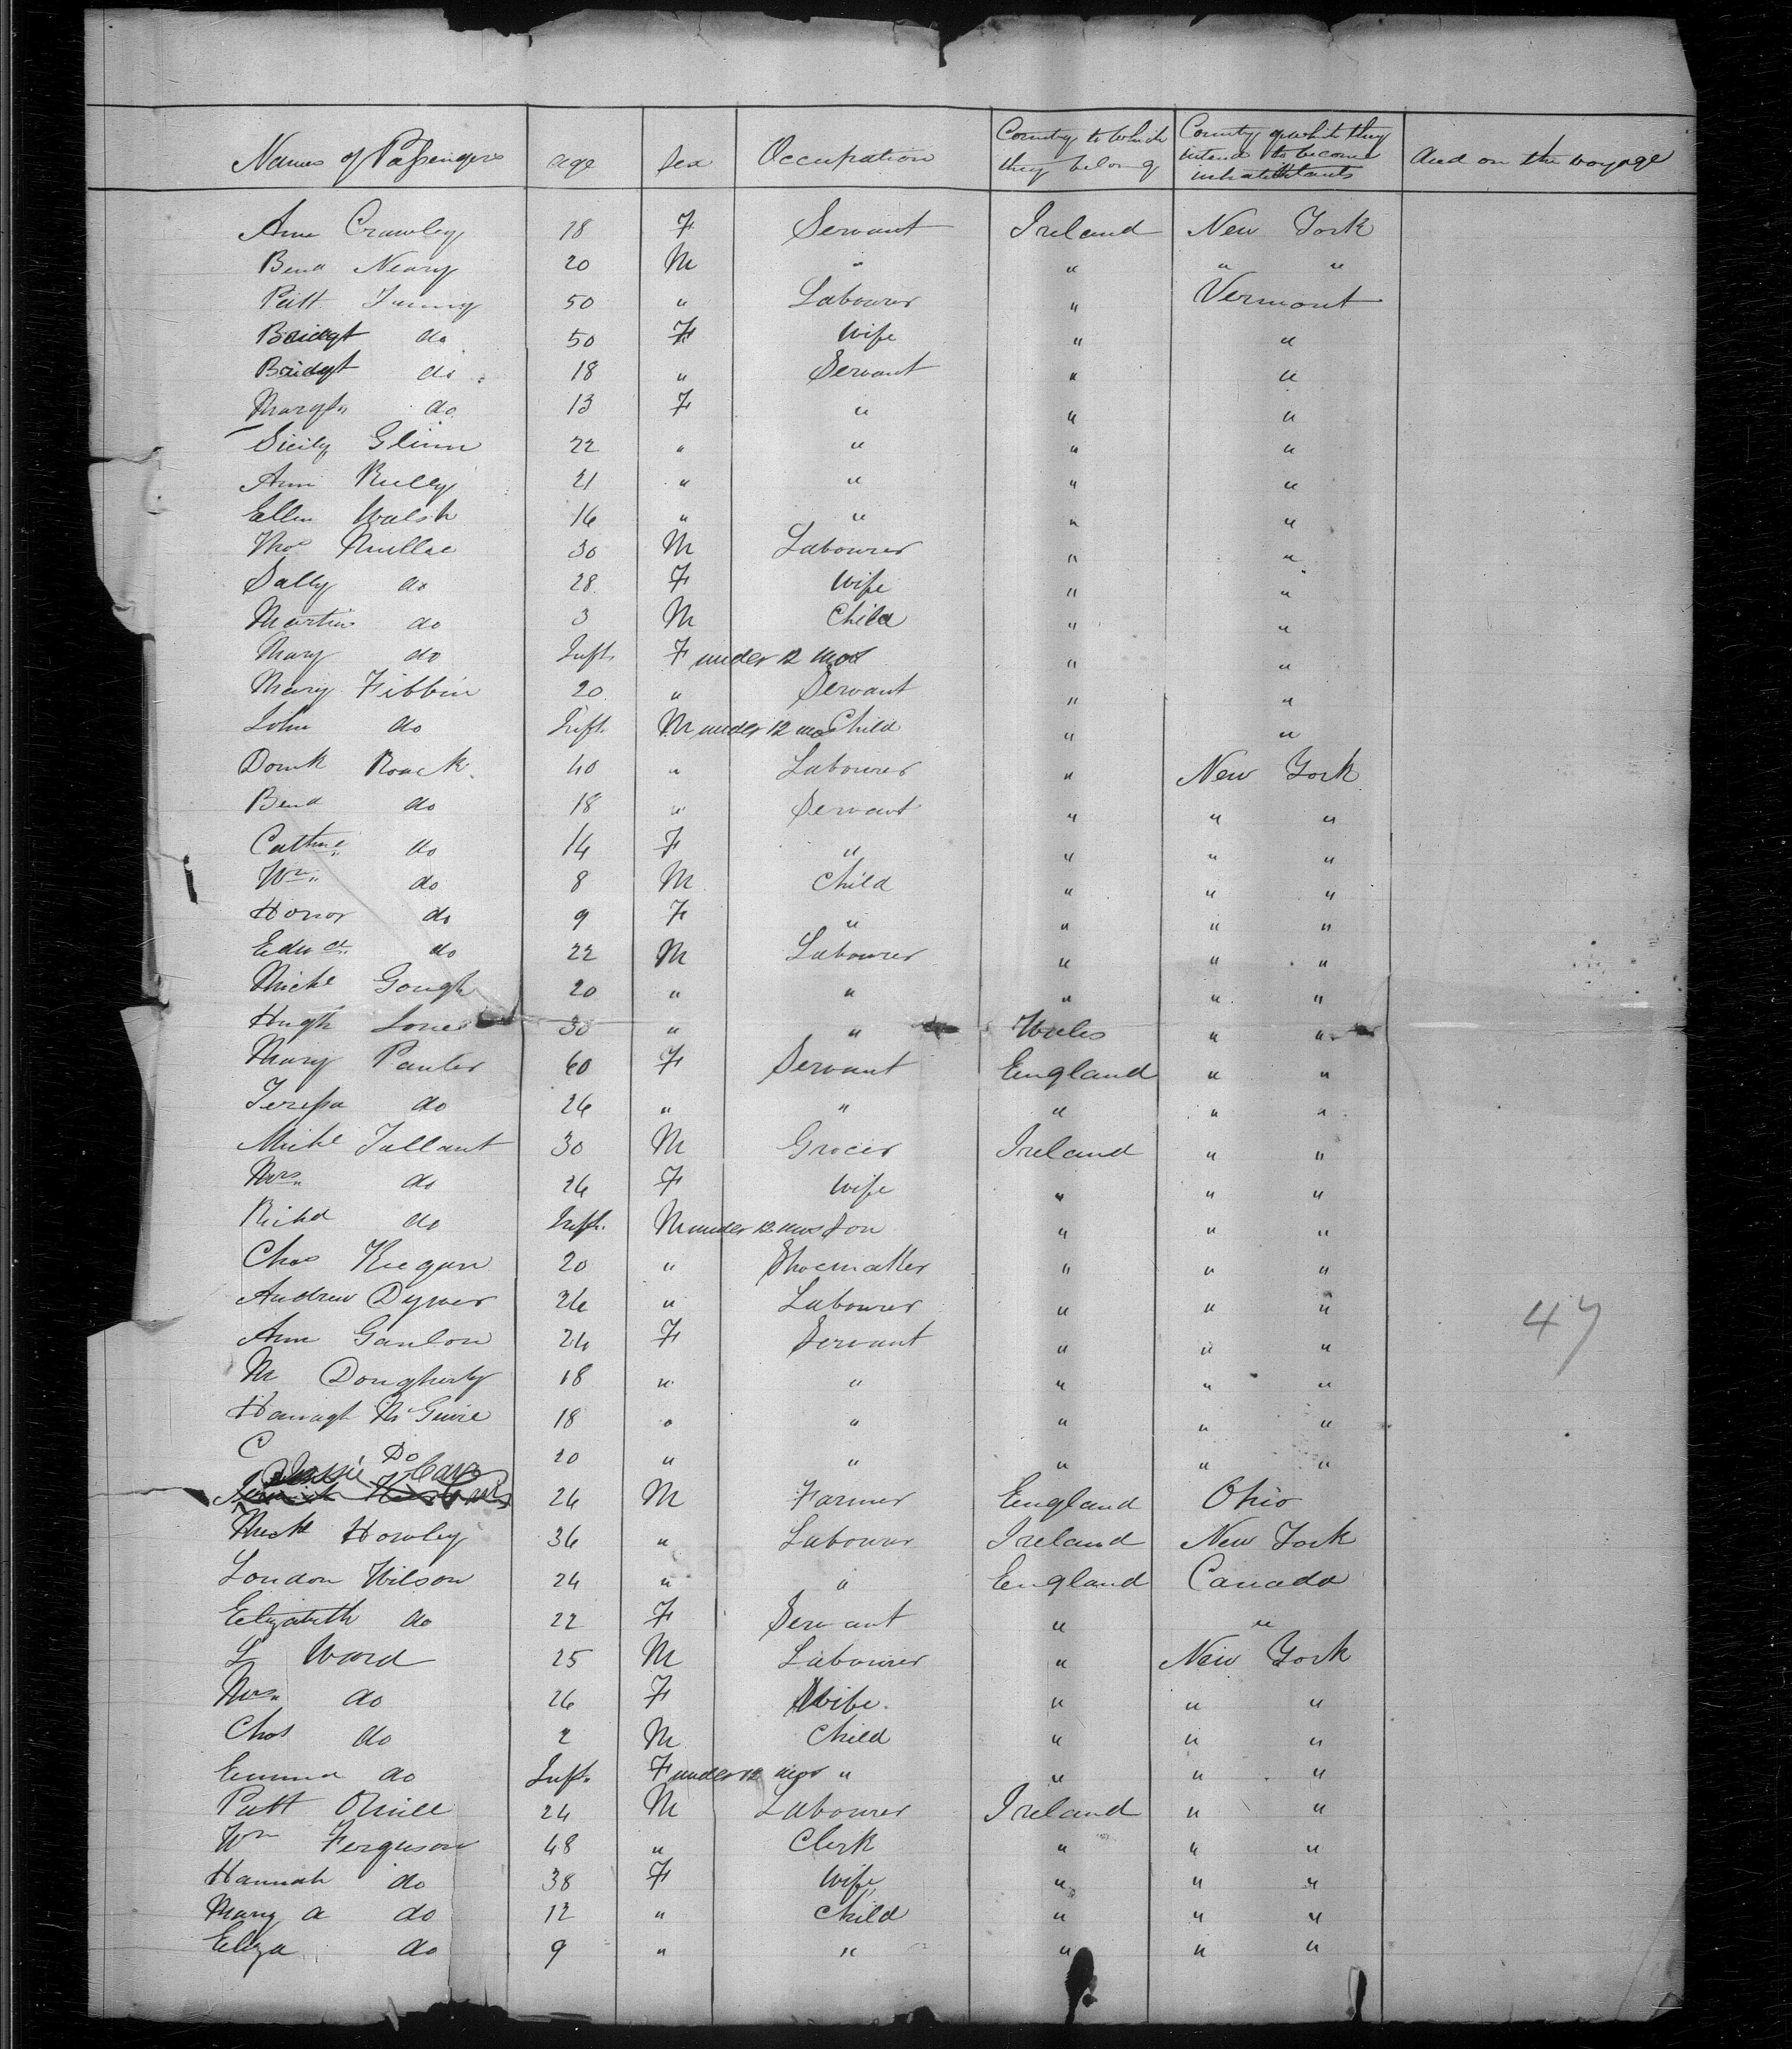 Names of Passengers age Sex Occupation County to Which they belong County of which they intend to become inhabitants died on the voyage
Ann Crawley 18 F Servant Ireland New York
Bend Neary 20 M " " " "
Patt 50 " Labourer " Vermont
Bridgt do 50 F Wife " "
Bridgt do 18 " Servant " "
Margt do 13 F " " "
Sicily Glinn 22 " " " "
Ann 21 " " " "
Ellen Walsh 16 " " " "
Thos Mullae 30 M Labourer " "
Sally do 28 F Wife " "
Martin do 3 M Child " "
Mary do Inft. F under 12 mos " "
Mary Fibbin 20 " Servant " "
John do Inft. M under 12 mos Child " "
Domk Roack 40 " Labourer " New York
Bend do 18 " Servant " " "
Cathne do 14 F " " " "
Wm do 8 M Child " " "
Honor do 9 F " " " "
Edwd do 22 M Labourer " " "
Michl Gough 20 " " " " "
Hugh Jones 30 " " Wales " "
Mary Panter 60 F Servant England " "
Teressa do 26 " " " " "
Michl Tallant 30 M Grocer Ireland " "
Mrs do 26 F Wife " " "
Richd do Inft. M under 12 mos Son " " "
Chas Keegan 20 " Shoemaker " " "
Andrew Dywer 26 " Labourer " " "
Ann Ganlon 24 F Servant " " "
M Dougherty 18 " " " " "
Hanagh McGuire 18 " " " " "
C Do 20 " " " " "
26 M Farmer England Ohio
Michl Howley 36 " Labourer Ireland New York
London Wilson 24 " " England Canada
Elizabeth do 22 F Servant " "
L Ward 25 M Labourer " New York
Mrs do 26 F Wife " " "
Chas do 2 M Child " " "
Emma do Inft. F under 12 mos " " " "
Patt ONeill 24 M Labourer Ireland " "
Wm Ferguson 48 " Clerk " " "
Hannah do 38 F Wife " " "
Mary a do 12 " Child " " "
Eliza do 9 " " " " "
47